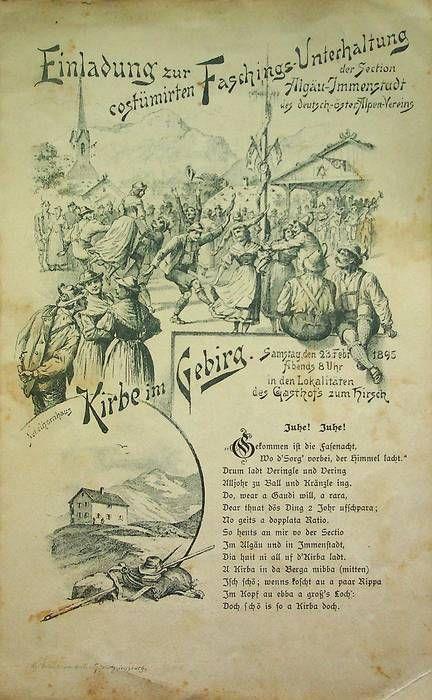 Einladung zur
costümirten Faschings-Unterhaltung
der Section
Algäu-Immenstadt
des deutsch-österAlpen-Vereins
Kirbe im Gebirg.
Samstag, den 23. Febr. 1895
Abends 8 Uhr
in den Lokalitäten
des Gasthofs zum Hirsch.
Nebelhornhaus
Juhe! Juhe!
„Gekommen ist die Fasenacht,
Wo d'Sorg' vorbei, der Himmel lacht.“
Drum ladt Veringle und Vering
Alljohr zu Ball und Kränzle ing.
Do, wear a Gaudi will, a rara,
Dear thuat dös Ding 2 Johr usschpara;
No geits a dopplata Ratio.
So hents au mir vo der Sectio
Im Algäu und in Immenstadt,
Dia huit ni all uf d'Kirba ladt.
A Kirba in da Berga mibba (mitten)
Isch schö; wenns koscht au a paar Rippa
Im Kopf au ebba a groß's Loch:
Doch schö is so a Kirba doch.